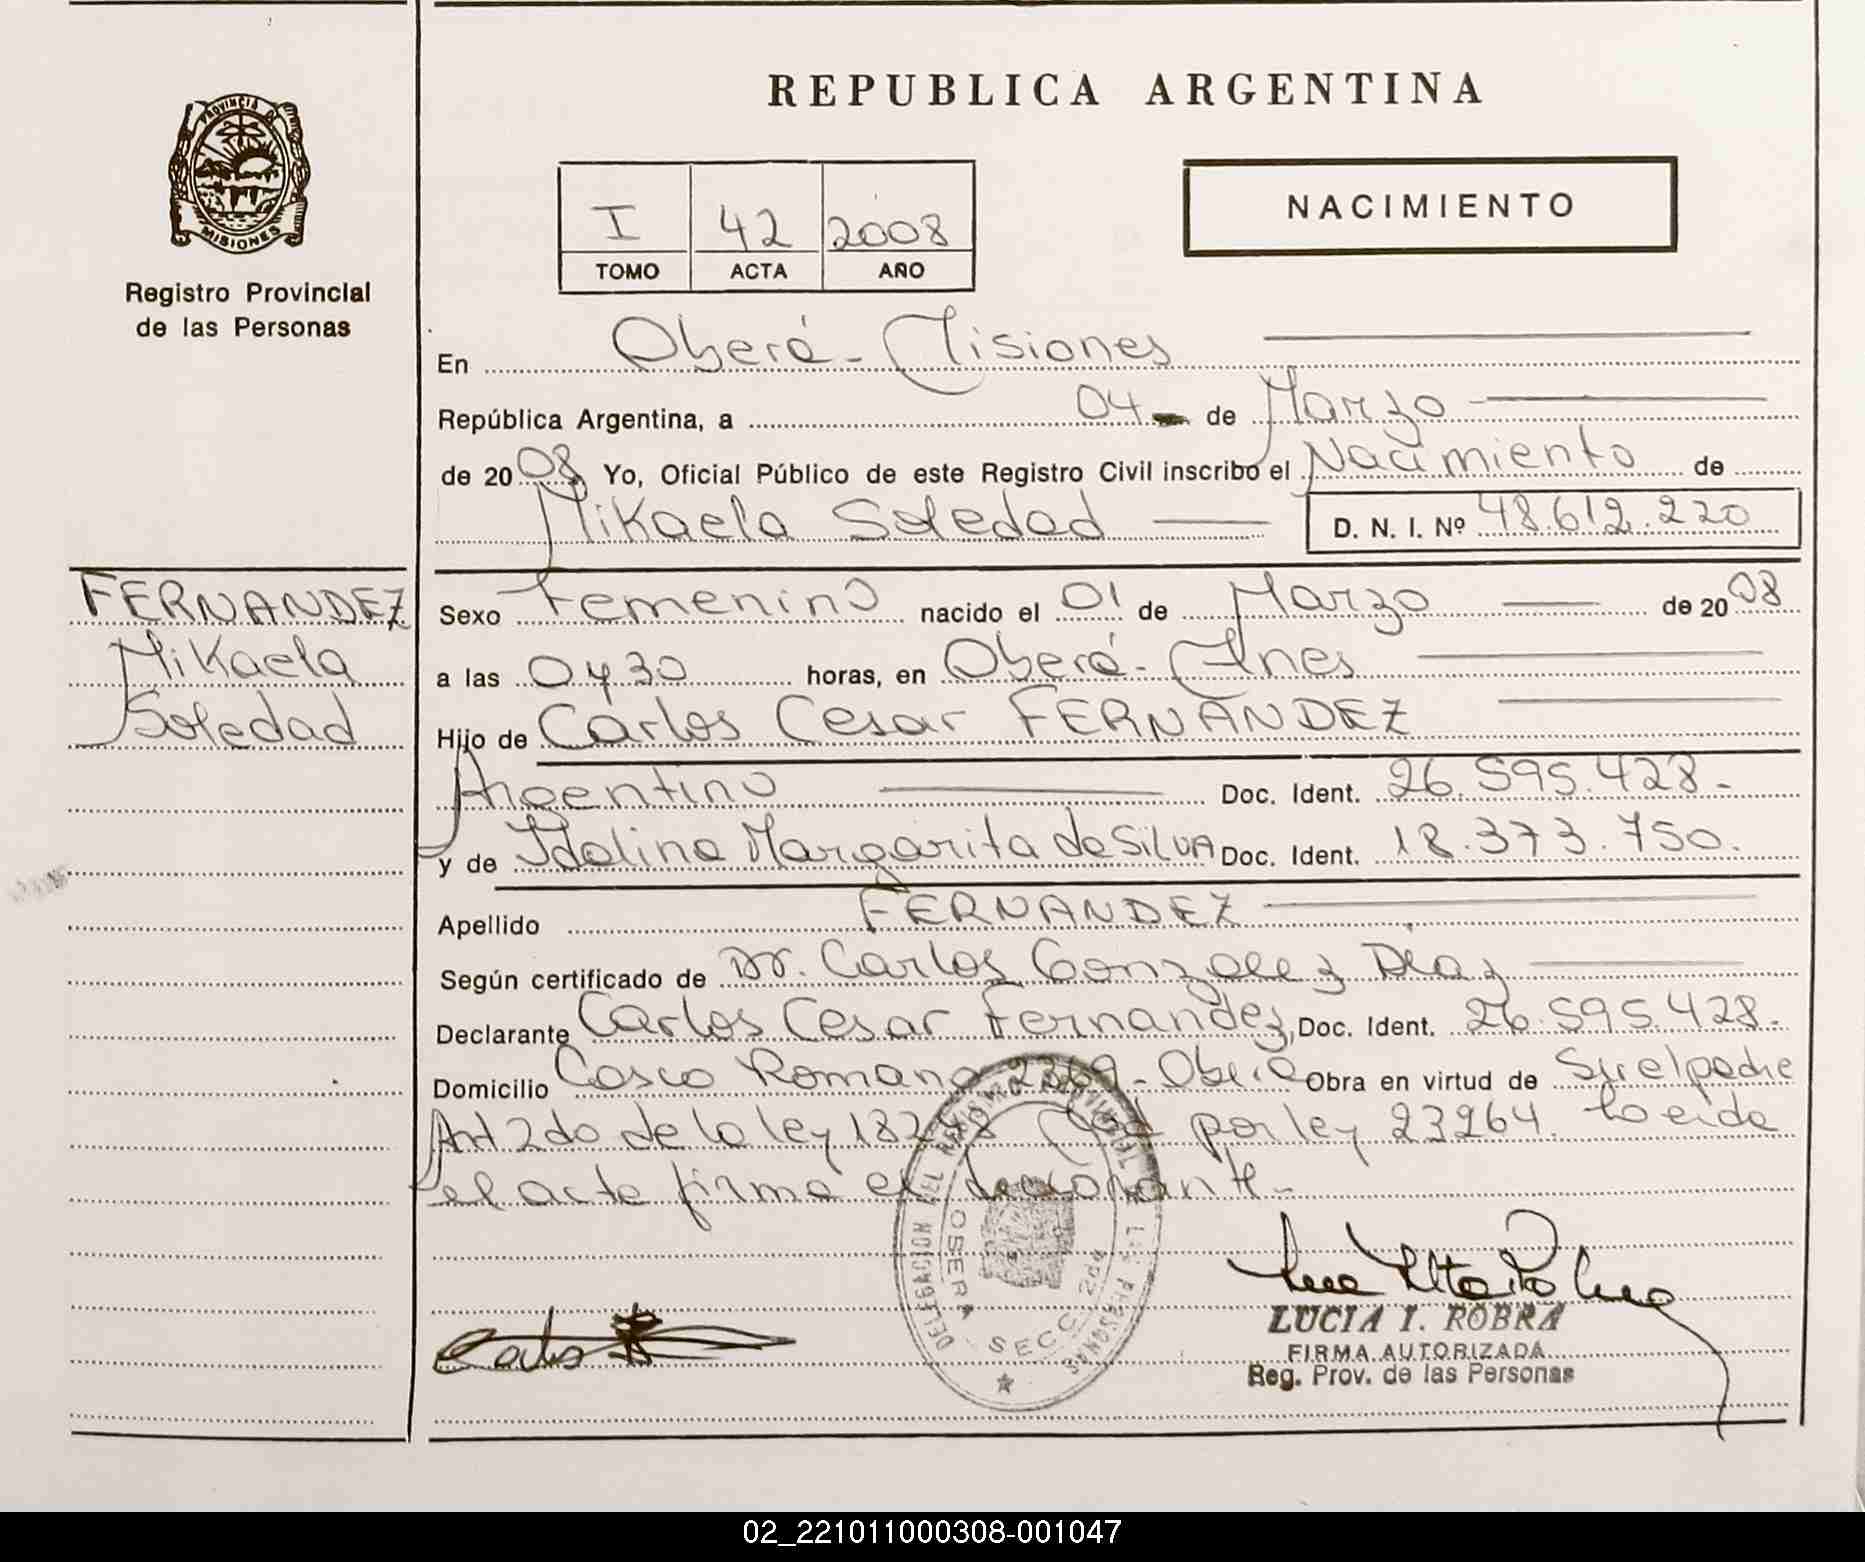 REPUBLICA ARGENTINA
PROVINCIA DE
MISIONES
Registro Provincial
de las Personas
I 42 2008
TOMO ACTA AÑO
NACIMIENTO
En Oberá - Misiones
República Argentina, a 04 de Marzo
de 2008 Yo, Oficial Público de este Registro Civil inscribo el Nacimiento de
Mikaela Soledad D. N. I. Nº 48.612.220
FERNANDEZ
Mikaela
Soledad
Sexo Femenino nacido el 01 de Marzo de 2008
a las 04 30 horas, en Oberá - Mnes
Hijo de Carlos Cesar FERNANDEZ
Argentino Doc. Ident. 26.595.428.-
y de Idalina Margarita da SILVA Doc. Ident. 18.373.750.
Apellido FERNANDEZ
Según certificado de Dr. Carlos Gonzalez Diaz
Declarante Carlos Cesar Fernandez, Doc. Ident. 26.595.428.
Domicilio Casco Romano 2369 - Oberá Obra en virtud de Ser el padre
Art 2do de la ley 18248 Mod por ley 23264. Leída
el acta firma el declarante.-
DELEGACION DEL REGISTRO PROVINCIAL DE LAS PERSONAS
OBERA - SECC. 2da
Carlos
LUCIA I. ROBRA
FIRMA AUTORIZADA
Reg. Prov. de las Personas
02_221011000308-001047